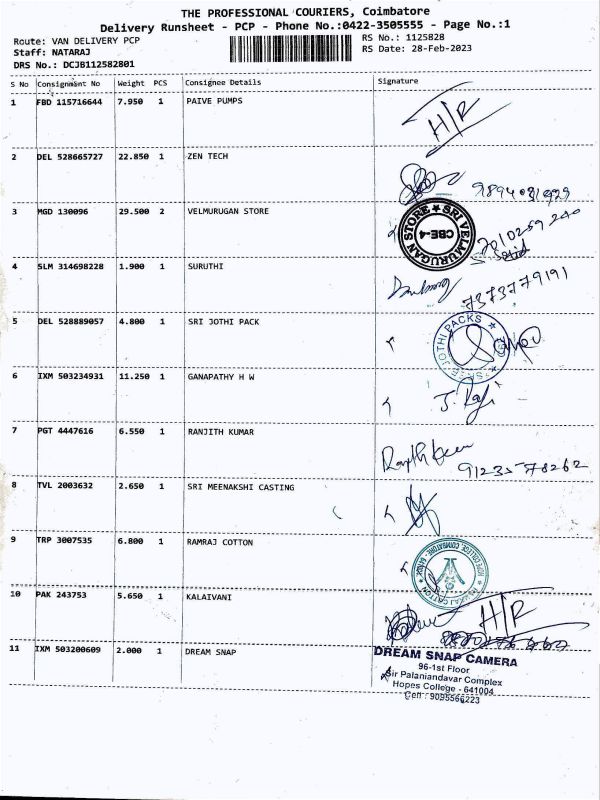 THE PROFESSIONAL COURIERS, Coimbatore
Delivery Runsheet - PCP - Phone No.:0422-3505555 - Page No.:1
Route: VAN DELIVERY PCP RS No.: 1125828
Staff: NATARAJ RS Date: 28-Feb-2023
DRS No.: DCJB112582801
S No Consignment No Weight PCS Consignee Details Signature
1 FBD 115716644 7.950 1 PAIVE PUMPS
H/R
2 DEL 528665727 22.850 1 ZEN TECH
3 MGD 130096 29.500 2 VELMURUGAN STORE
SRI VELMURUGAN STORE
CBE-4
4 SLM 314698228 1.900 1 SURUTHI
7373779191
5 DEL 528889057 4.800 1 SRI JOTHI PACK
SREE JOTHI PACKS
6 IXM 503234931 11.250 1 GANAPATHY H W
7 PGT 4447616 6.550 1 RANJITH KUMAR
8 TVL 2003632 2.650 1 SRI MEENAKSHI CASTING
9 TRP 3007535 6.800 1 RAMRAJ COTTON
HOPE COLLEGE, COIMBATORE
10 PAK 243753 5.650 1 KALAIVANI
H/R
11 IXM 503200609 2.000 1 DREAM SNAP
DREAM SNAP CAMERA
96-1st Floor
Sir Palaniandavar Complex
Hopes College - 641004
Cell : 9095566223